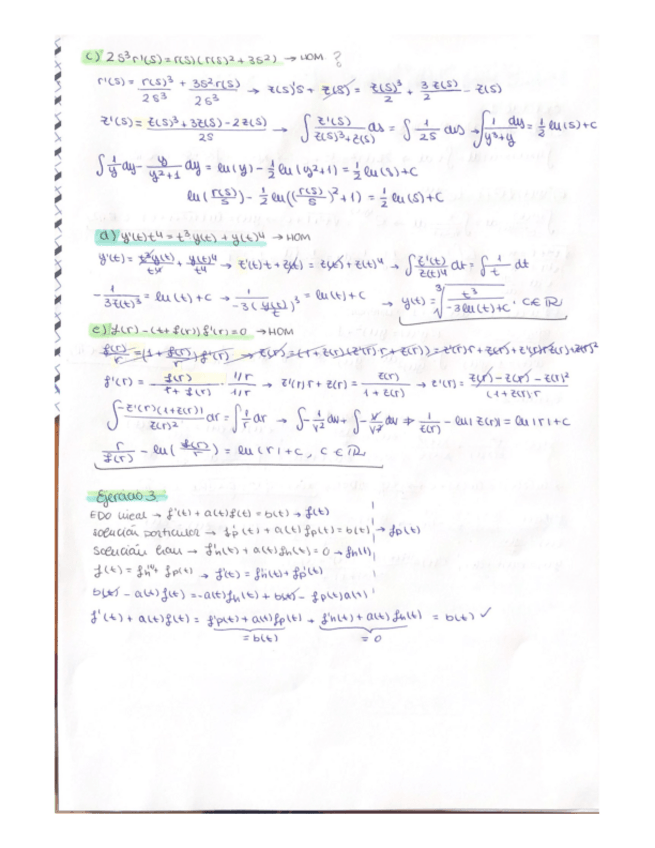 c) 2s³r'(s) = r(s)(r(s)² + 3s²) → HOM ?
r'(s) = r(s)³/2s³ + 3s²r(s)/2s³ → z(s)'s + z(s) = z(s)³/2 + 3z(s)/2 - z(s)
z'(s) = z(s)³+3z(s)-2z(s)/2s → ∫ z'(s)/z(s)³+z(s) ds = ∫ 1/2s ds → ∫ 1/y³+y dy = 1/2 ln(s)+c
∫ 1/y dy - y/y²+1 dy = ln(y) - 1/2 ln(y²+1) = 1/2 ln(s)+c
ln(r(s)/s) - 1/2 ln((r(s)/s)²+1) = 1/2 ln(s)+c
d) y'(t)t⁴ = t³y(t) + y(t)⁴ → HOM
y'(t) = t³y(t)/t⁴ + y(t)⁴/t⁴ → z'(t)t + z(t) = z(t) + z(t)⁴ → ∫ z'(t)/z(t)⁴ dt = ∫ 1/t dt
- 1/3z(t)³ = ln(t) + c → 1/-3(y(t)/t)³ = ln(t) + c → y(t) = ³√(t³/-3ln(t)+c), c∈ℝ
e) f(r) - (t + f(r)) f'(r) = 0 → HOM
f(r)/r = (1 + f(r)/r) f'(r) → z(r) = (1 + z(r))(z'(r)r + z(r)) = z'(r)r + z(r) + z'(r)rz(r) + z(r)²
f'(r) = f(r)/r + f(r) · 1/r/1/r → z'(r)r + z(r) = z(r)/1+z(r) → z'(r) = z(r) - z(r) - z(r)²/(1+z(r))r
∫ -z'(r)(1+z(r))/z(r)² dr = ∫ 1/r dr → ∫ -1/v² dv + ∫ - v/v² dv ⇒ 1/z(r) - ln|z(r)| = ln|r| + c
r/f(r) - ln(f(r)/r) = ln(r) + c, c∈ℝ
Ejercicio 3.
EDO lineal → f'(t) + a(t)f(t) = b(t) → f(t)
solución particular → f'p(t) + a(t)fp(t) = b(t) → fp(t)
Solución hom → f'h(t) + a(t)fh(t) = 0 → fh(t)
f(t) = fh(t)+fp(t) → f'(t) = f'h(t) + f'p(t)
b(t) - a(t)f(t) = -a(t)fh(t) + b(t) - fp(t)a(t)
f'(t) + a(t)f(t) = f'p(t) + a(t)fp(t) + f'h(t) + a(t)fh(t) = b(t) ✓
= b(t) = 0